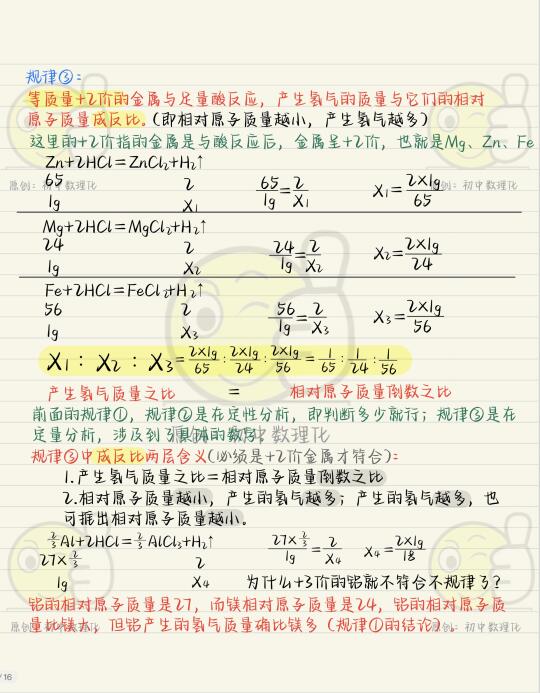 规律③:
等质量+2价的金属与足量酸反应，产生氢气的质量与它们的相对
原子质量成反比。(即相对原子质量越小，产生氢气越多)
这里的+2价指的金属是与酸反应后，金属呈+2价，也就是Mg、Zn、Fe
Zn+2HCl=ZnCl₂+H₂↑
原创：初中数理化
65 2 65/1g=2/X₁ X₁=2×1g/65
1g X₁
Mg+2HCl=MgCl₂+H₂↑
24 2 24/1g=2/X₂ X₂=2×1g/24
1g X₂
Fe+2HCl=FeCl₂+H₂↑
56 2 56/1g=2/X₃ X₃=2×1g/56
1g X₃
X₁：X₂：X₃=2×1g/65:2×1g/24:2×1g/56=1/65:1/24:1/56
产生氢气质量之比 = 相对原子质量倒数之比
前面的规律①，规律②是在定性分析，即判断多少就行；规律③是在
定量分析，涉及到了具体的数字。
原创：初中数理化
规律③中成反比两层含义(必须是+2价金属才符合):
1.产生氢气质量之比=相对原子质量倒数之比
2.相对原子质量越小，产生的氢气越多；产生的氢气越多，也
可推出相对原子质量越小。
2/3Al+2HCl=2/3AlCl₃+H₂↑ 27×2/3/1g=2/X₄ X₄=2×1g/18
27×2/3 2
1g X₄ 为什么+3价的铝就不符合不规律了？
铝的相对原子质量是27，而镁相对原子质量是24，铝的相对原子质
量比镁大，但铝产生的氢气质量确比镁多（规律①的结论）。
原创：初中数理化
原创：初中数理化
/16